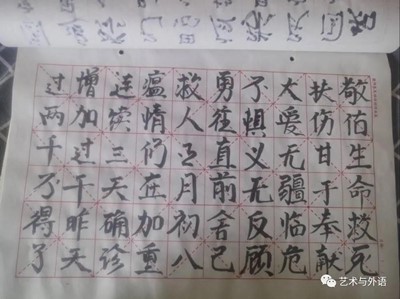 敬佑生命救死
扶伤甘于奉献
大爱无疆临危
不惧义无反顾
勇往直前舍己
救人正月初八
瘟情们在加重
连续三天确诊
增加过千昨天
过两千了得了
艺术与外语